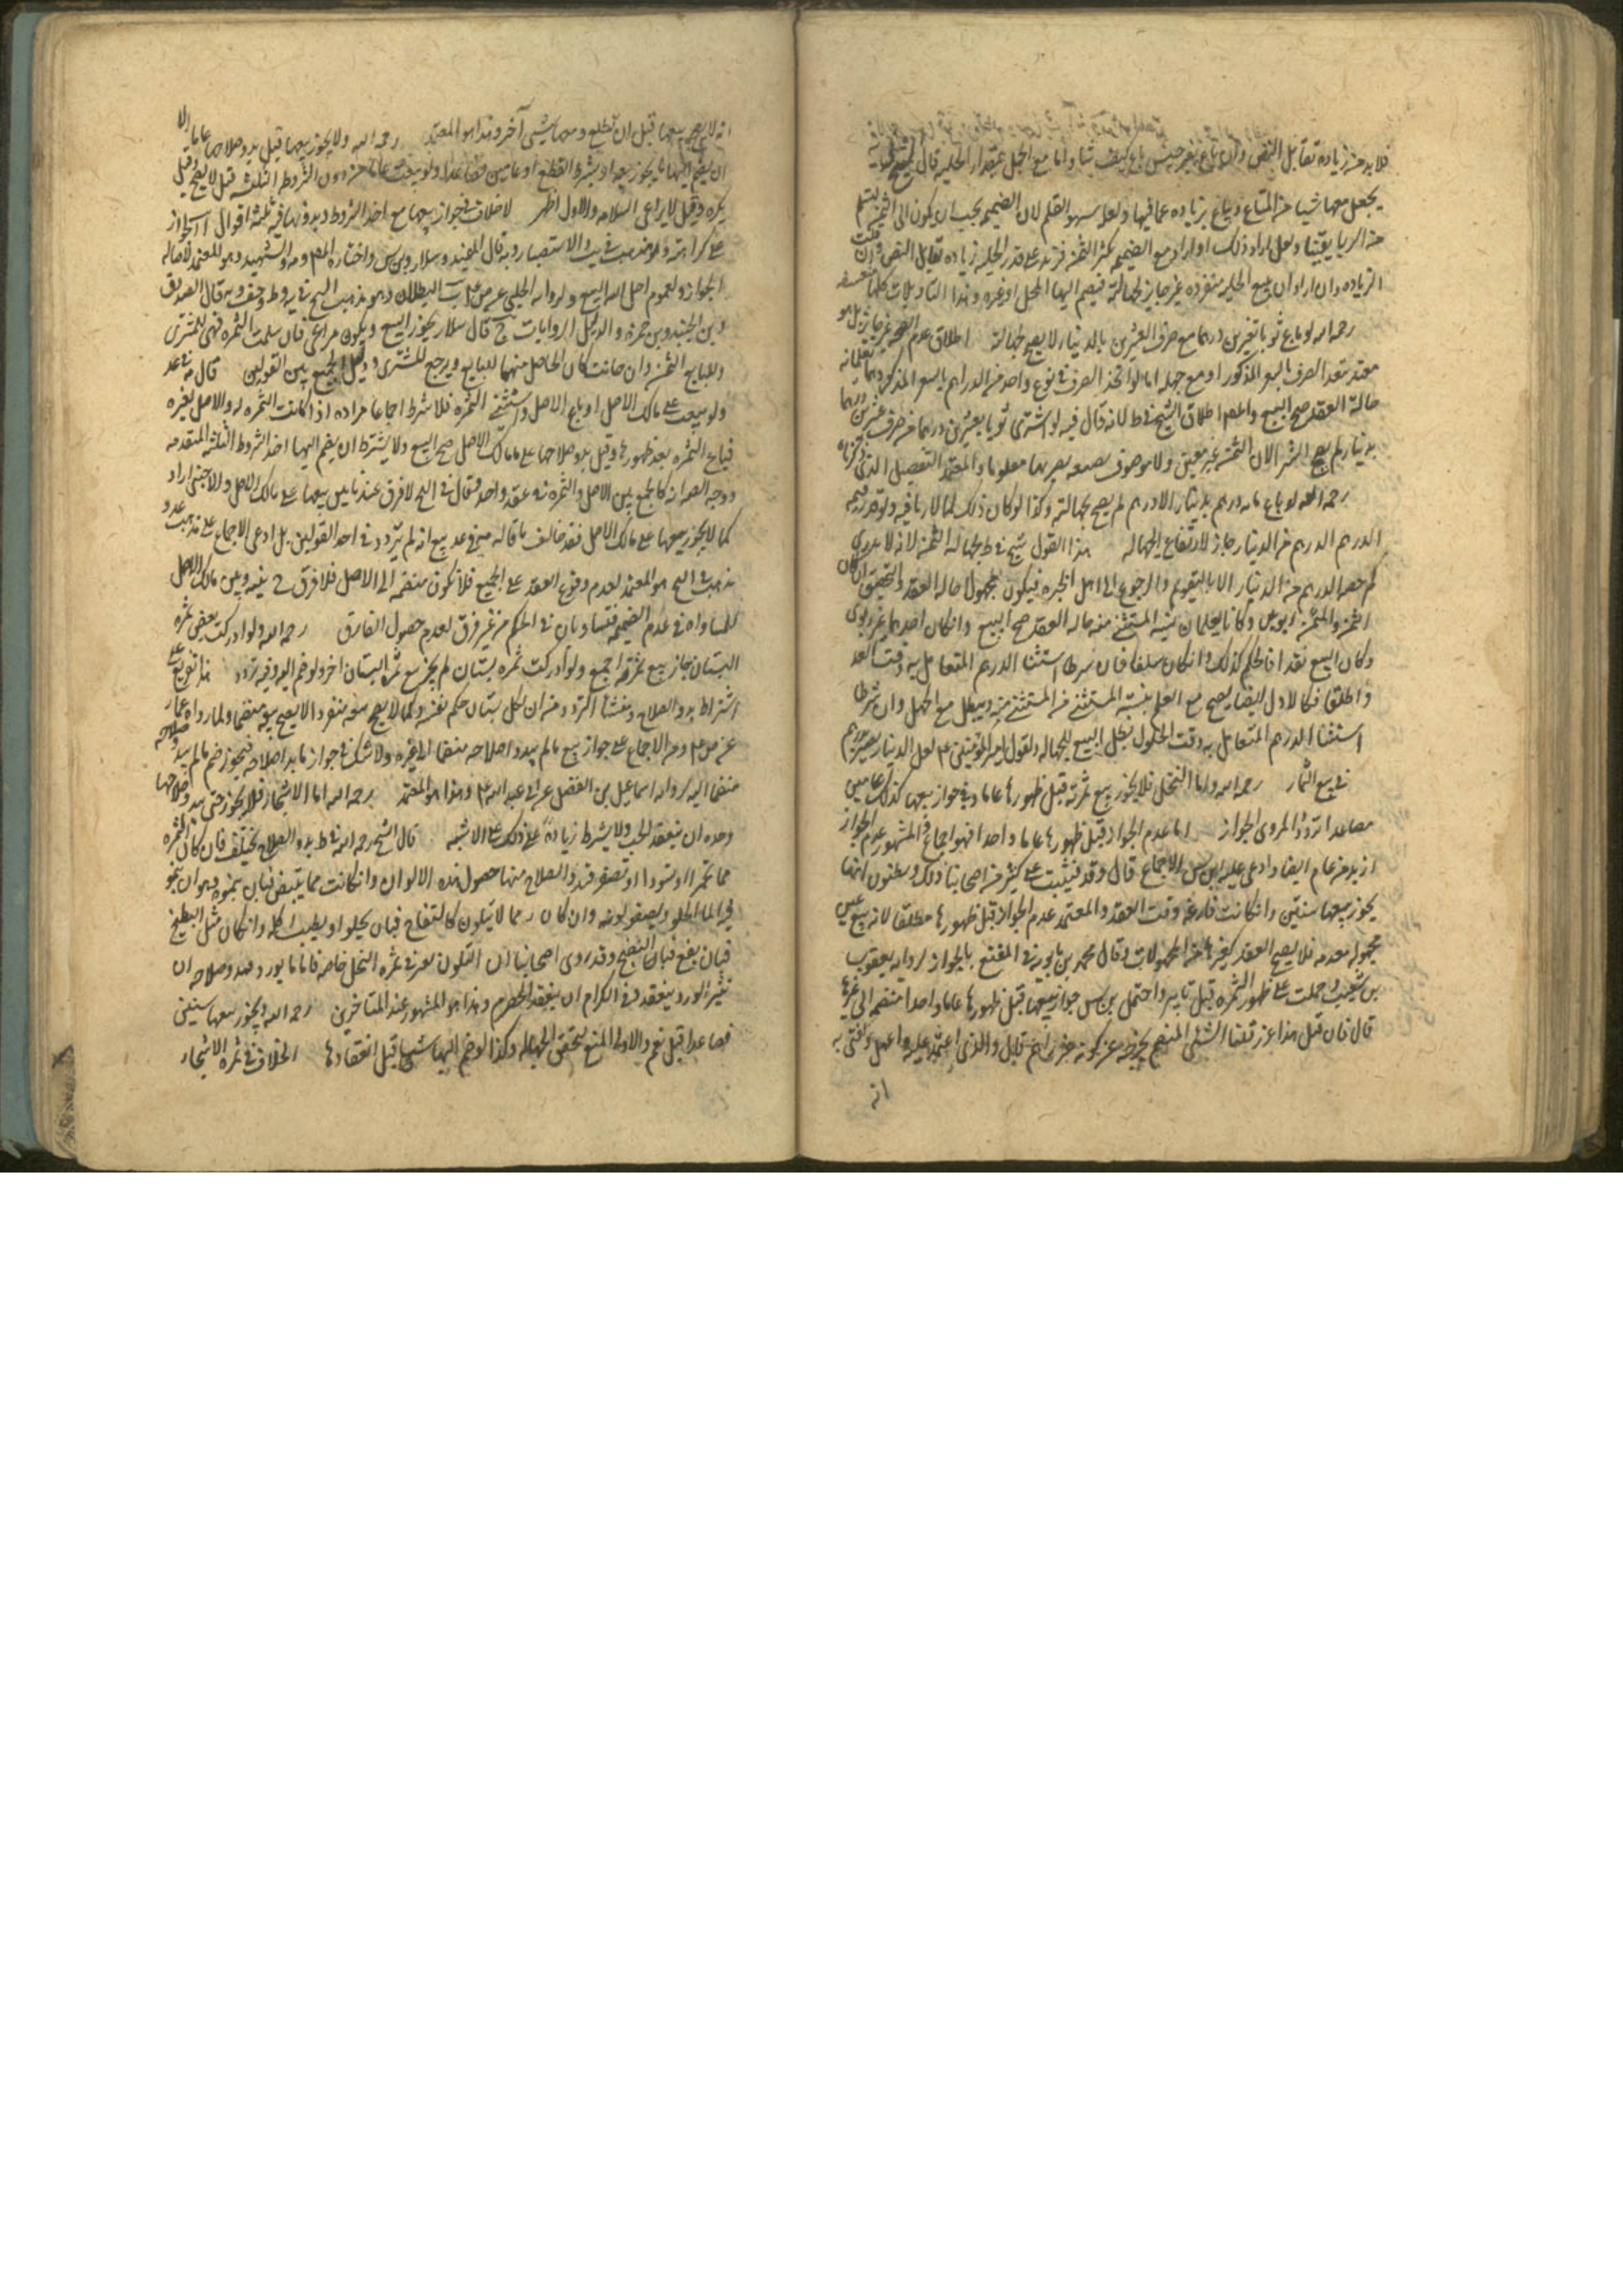 فلا بد من زيادة تقابل النقص وان باع بغير جنس باع كيف شاء واما مع الجهل بمقدار الحليه قال الشيخ
يجعل معها شيئا من المتاع ويباع بزياده عما فيها ولعله سهو القلم لان الضميمه يجب ان يكون الى الثمن ليسلم
من الربا يقينا ولعل اراد ذلك او اراد مع الضميمه يكثر الثمن فزيد على قدر الحليه زياده تقابل النقص
الزياده وان اراد ان بيع الحليه منفرده غير جايز لجهالته فيضم اليها المحل او غيره وهذا التاويلات كلها
رحمه الله لو باع ثوبا بعشرين درهما مع صرف العشرين بالدينار لا يصح لجهالته اطلاق عدم الصحه غير جايز بل هو
مقيد بتعدد الصرف بالسعر المذكور او مع جهله اما لو اتحد الصرف في نوع واحد من الدراهم بالسعر المذكور
حالة العقد صح البيع والمص اطلاق الشيخ في ط لانه قال فيه لو اشترى ثوبا بعشرين درهما من صرف عشرين درهما
بدينار لم يصح الشراء لان الثمن غير معين ولا موصوف بصفه يصير بها معلوما والمعتمد التفصيل الذي ذكرناه
رحمه الله لو باع مايه درهم بدينار الا درهم لم يصح لجهالته وكذا لو كان ذلك ثمنا لما لا ربا فيه ولو قدر قيمه
الدرهم من الدينار جاز لارتفاع الجهاله هذا القول الشيخ في ط لجهالة الثمن لانه لا يدرى
كم حصه الدرهم من الدينار الا بالتقويم والرجوع الى اهل الخبره فيكون مجهولا حاله العقد والتحقيق ان كان
الثمن والمثمن ربويين وكانا يعلمان نسبه المستثنى منه حاله العقد صح البيع وان كان احدهما غير ربوى
وكان البيع نقدا فالحكم كذلك وان كان سلفا فان شرطا استثنا الدرهم المتعامل به وقت العقد
واطلقا فكالاول ايضا يصح مع العلم بنسبة المستثنى من المستثنى منه ويبطل مع الجهل وان شرطا
استثنا الدرهم المتعامل به وقت الحلول بطل البيع للجهاله ولقول امير المؤمنين ع لعل الدينار يصير بدرهم
في بيع الثمار رحمه الله واما النخل فلا يجوز بيع ثمرته قبل ظهورها عاما وفي جواز بيعها كذلك عامين
فصاعدا تردد المروى الجواز اما عدم الجواز قبل ظهورها عاما واحدا فهو اجماع والمشهور عدم الجواز
ازيد من عام ايضا وادعى عليه ابن س الاجماع قال وقد يشتبه على كثير من اصحابنا ذلك ويظنون انها
يجوز بيعها سنتين وان كانت فارغه وقت العقد والمعتمد عدم الجواز قبل ظهورها مطلقا لانه بيع عين
مجهوله معدومه فلا يصح العقد كغيرها من المجهولات وقال محمد بن بابويه في المقنع بالجواز لروايه يعقوب
بن شعيب وحملت على ظهور الثمره قبل تابيرها واحتمل بن س جواز بيعها قبل ظهورها عاما واحدا منضمه الى غيرها
قال فان قيل هذا غرر قلنا الشئ المنضم يخرجه عن كونه غررا ثم قال والذي اعتمد عليه واعمل وافتى به
انه
انه لا يصح بيعها قبل ان تطلع ومعها شئ آخر وهذا هو المعتمد رحمه الله ولا يجوز بيعها قبل بدو صلاحها عاما الا
ان يضم اليها ما يجوز بيعه او بشرط القطع او عامين فصاعدا ولو بيعت عاما من دون الشروط الثلثه قيل لا يصح وقيل
يكره وقيل يراعى السلامه والاول اظهر لا خلاف في جواز بيعها مع احد الشروط وبدونها فيه ثلثة اقوال آ الجواز
على كراهته وهو مذهب الشيخ في يب والاستبصار وبه قال المفيد وسلار وبن س واختاره المص والشهيد وهو المعتمد لاصاله
الجواز ولعموم احل الله البيع ولروايه الحلبي عن ص ع ب البطلان وهو مذهب الشيخ في يه وط وخف وبه قال الصدوق
وبن الجنيد وبن حمزه والدليل الروايات ج قال سلار يجوز البيع ويكون مراعى فان سلمت الثمره فهي للمشترى
وللبايع الثمن وان خانت كان الحاصل منها للبايع ويرجع المشترى ودليل الجمع بين القولين قال في عد
ولو بيعت على مالك الاصل او باع الاصل واستثنى الثمره فلا شرط اجماعا مراده اذا كانت الثمره له والاصل لغيره
فباع الثمره بعد ظهورها وقبل بدو صلاحها على مالك الاصل صح البيع ولا يشترط ان يضم اليها احد الشروط الثلثه المتقدمه
ووجه الصحه انه كالجمع بين الاصل والثمره في عقد واحد وقال في الح لا فرق عندنا بين بيعها على مالك الاصل والاجنبي اراد
كما لا يجوز بيعها على مالك الاصل فقد خالف ما قاله هنا في عد مع انه لم يتردد في احد القولين بل ادعى الاجماع على مذهب عد و
مذهب الح هو المعتمد لعدم وقوع العقد على الجميع فلا تكون منضمه الى الاصل فلا فرق ح بينه وبين مالك الاصل
للمساواه في عدم الضميمه فتساويان في الحكم من غير فرق لعدم حصول الفارق رحمه الله ولو ادركت بعض ثمره
البستان جاز بيع ثمرته اجمع ولو ادركت ثمره بستان لم يجز بيع ثمره البستان اخر ولو ضم اليه وفيه تردد هذا تفريع على
اشتراط بدو الصلاح ومنشأ التردد من ان لكل بستان حكم نفسه وكما لا يصح بيعه منفردا لا يصح بيعه منضما ولما رواه عمار
عن ص ع ومن الاجماع على جواز بيع ما لم يبد صلاحه منضما الى غيره ولا شك في جواز ما بدا صلاحه فيجوز ضم ما لم يبد صلاحه
منضما اليه لروايه اسماعيل بن الفضل عن ابي عبد الله ع وهذا هو المعتمد رحمه الله اما الاشجار فلا يجوز حتى يبدو صلاحها
وحده ان ينعقد الحب ولا يشترط زيادة على ذلك على الاشبه قال الشيخ رحمه الله في ط بدو الصلاح يختلف فان كان الثمره
مما تحمر او تسود او تصفر فبدو الصلاح فيها حصول هذه الالوان وان كانت مما يبيض فبان يتموه وهو ان ينمو
فيه الماء الحلو ويصفو لونه وان كان مما لا يتلون كالتفاح فبان يحلو او يطيب اكله وان كان مثل البطيخ
فبان يقع فيه النضج وقد روى اصحابنا ان التلون يعتبر في ثمره النخل خاصه فاما ما يورد فبدو صلاحه ان
ينثر الورد وينعقد وفي الكرم ان ينعقد الحصرم وهذا هو المشهور عند المتاخرين رحمه الله ويجوز بيعها سنتين
فصاعدا قبل نعم والاولى المنع لتحقق الجهاله وكذا لو ضم اليها شيئا قبل انعقادها الخلاف في ثمره الاشجار